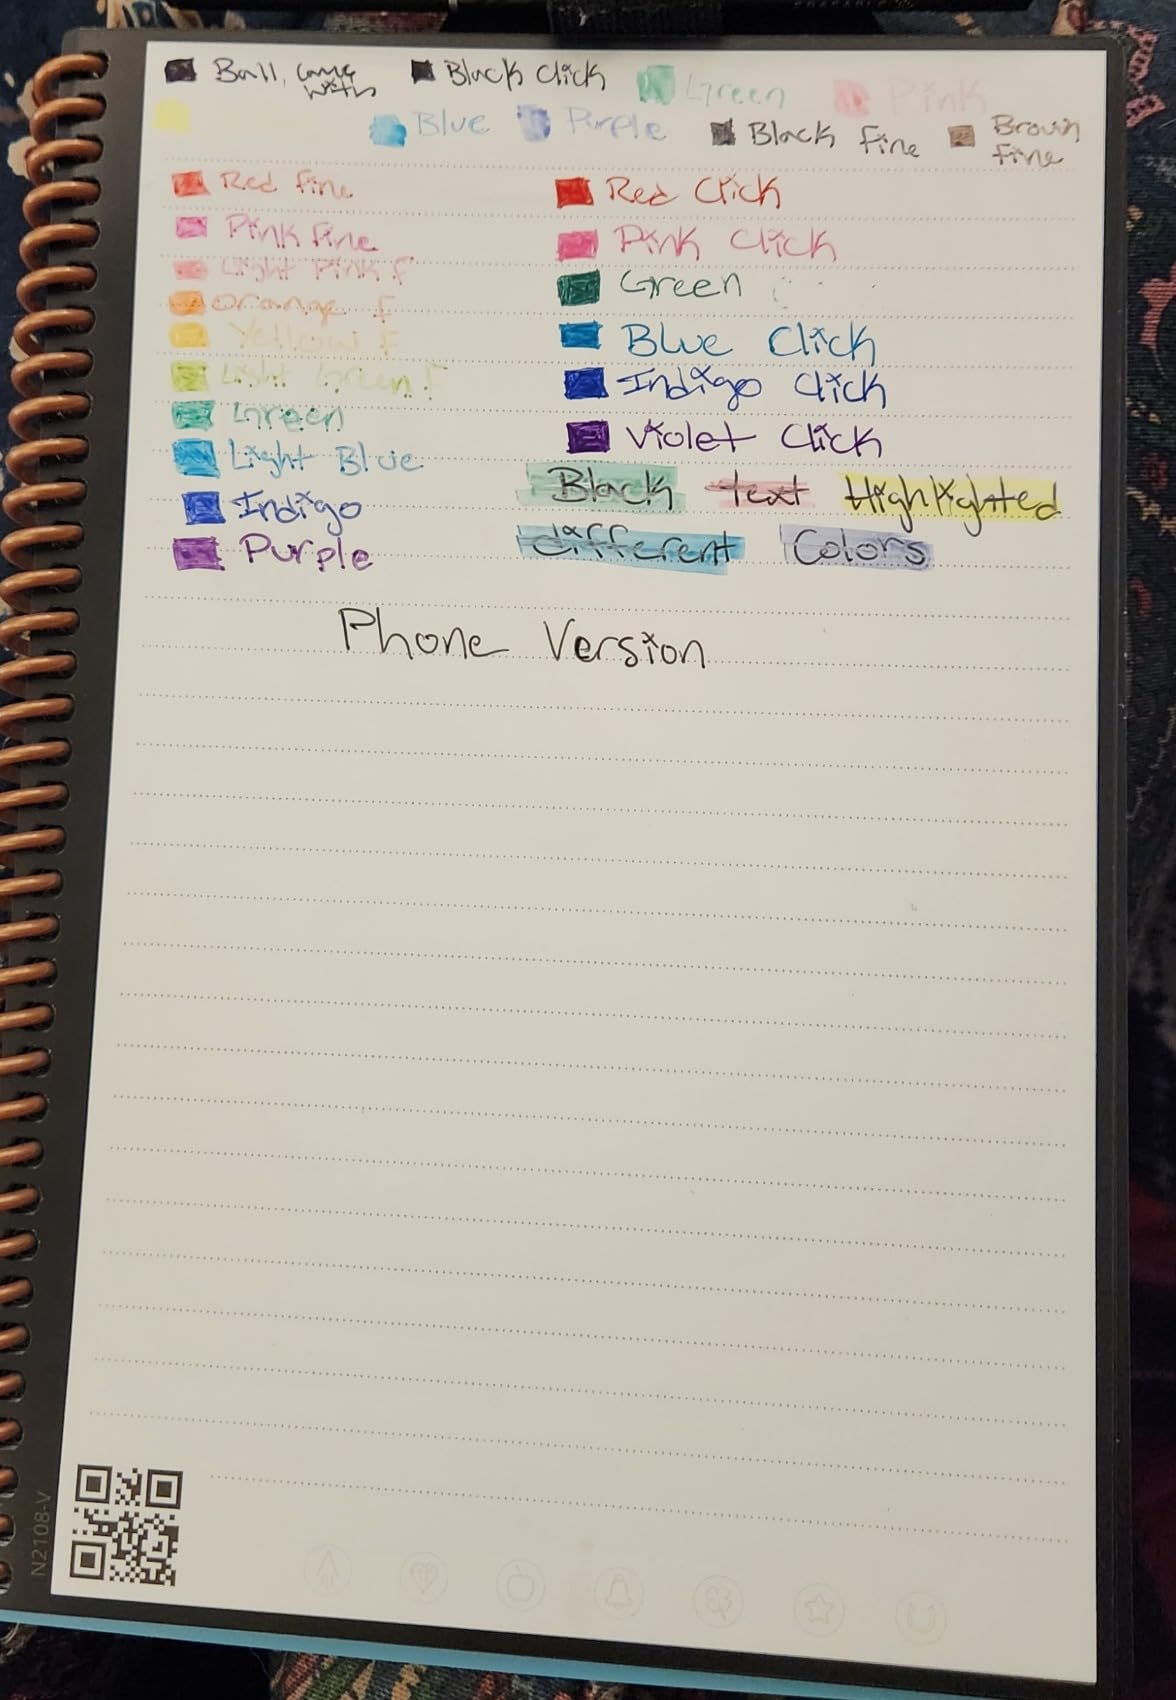 Ball, came with Black Click Green Pink
Blue Purple Black fine Brown fine
Red fine Red Click
Pink Fine Pink Click
Light Pink f Green
Orange f
Yellow f Blue Click
Light Green f Indigo Click
Green Violet Click
Light Blue Black text Highlighted
Indigo different Colors
Purple
Phone Version
N2108-V